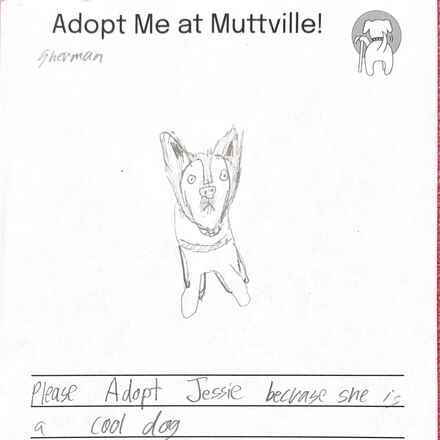 Adopt Me at Muttville!
Sherman
Please Adopt Jessie because she is
a cool dog